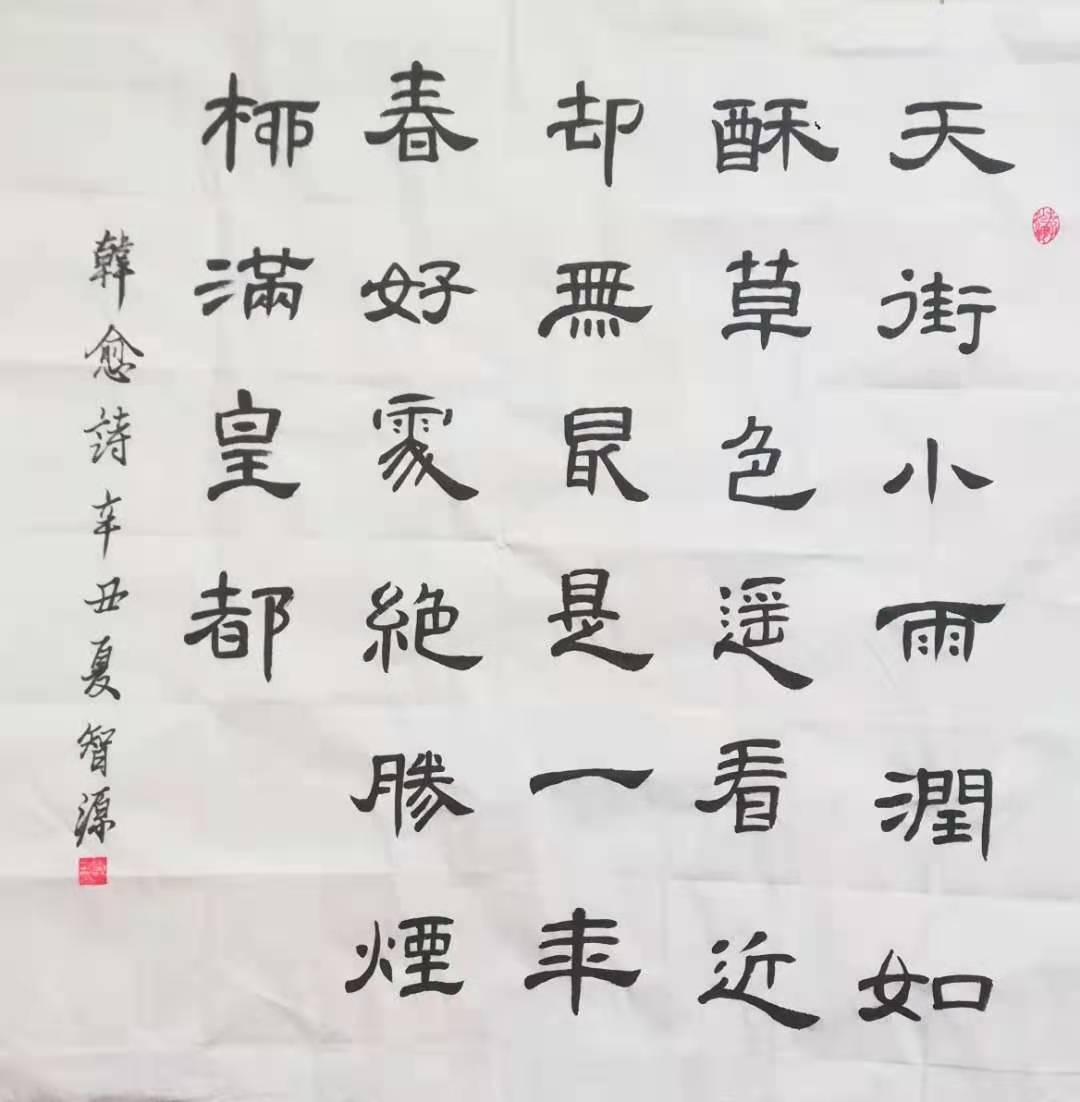 天街小雨潤如
酥草色遥看近
却無最是一年
春好處絶勝煙
柳滿皇都
韓愈詩辛丑夏智源